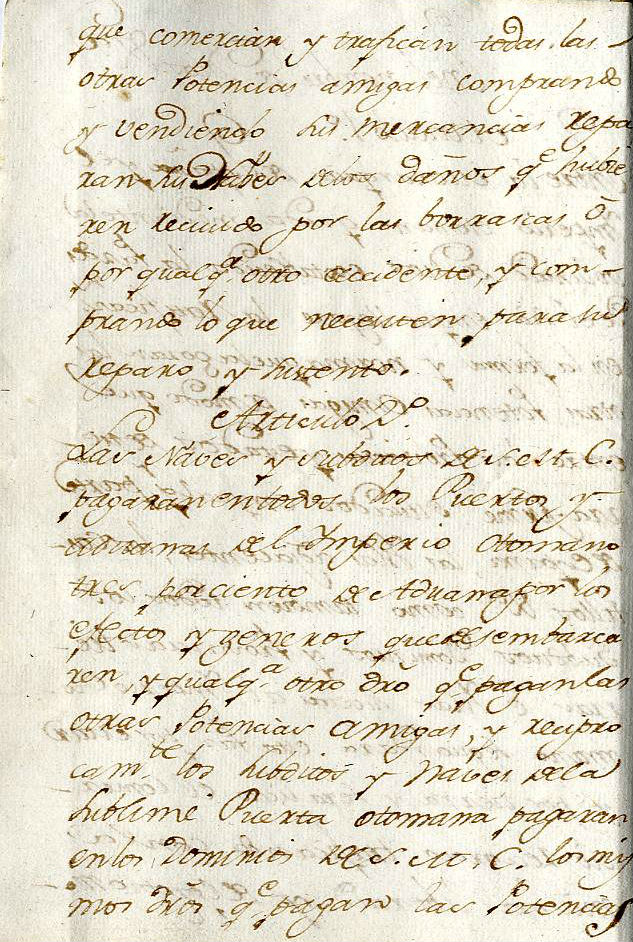 que comercian y trafican todas las
otras Potencias amigas comprando
y vendiendo sus mercancias repa
ran sus Naves de los daños q.e hubie
ren recivido por las borrascas ó
por qualq.a otro accidente, y com-
prando lo que necesiten para su
reparo y sustento.
Articulo 2.º
Las Naves y subditos de S. M. C.
pagaran en todos los Puertos y
aduanas del Imperio Otomano
tres por ciento de Aduana por los
efectos y generos que desembarca
ren, y qualq.a otro dro q.e pagan las
otras Potencias amigas, y recipro
cam.te los subditos y Naves de la
Sublime Puerta otomana pagaran
en los Dominios de S. M. C. los mis
mos dros q.e pagan las Potencias